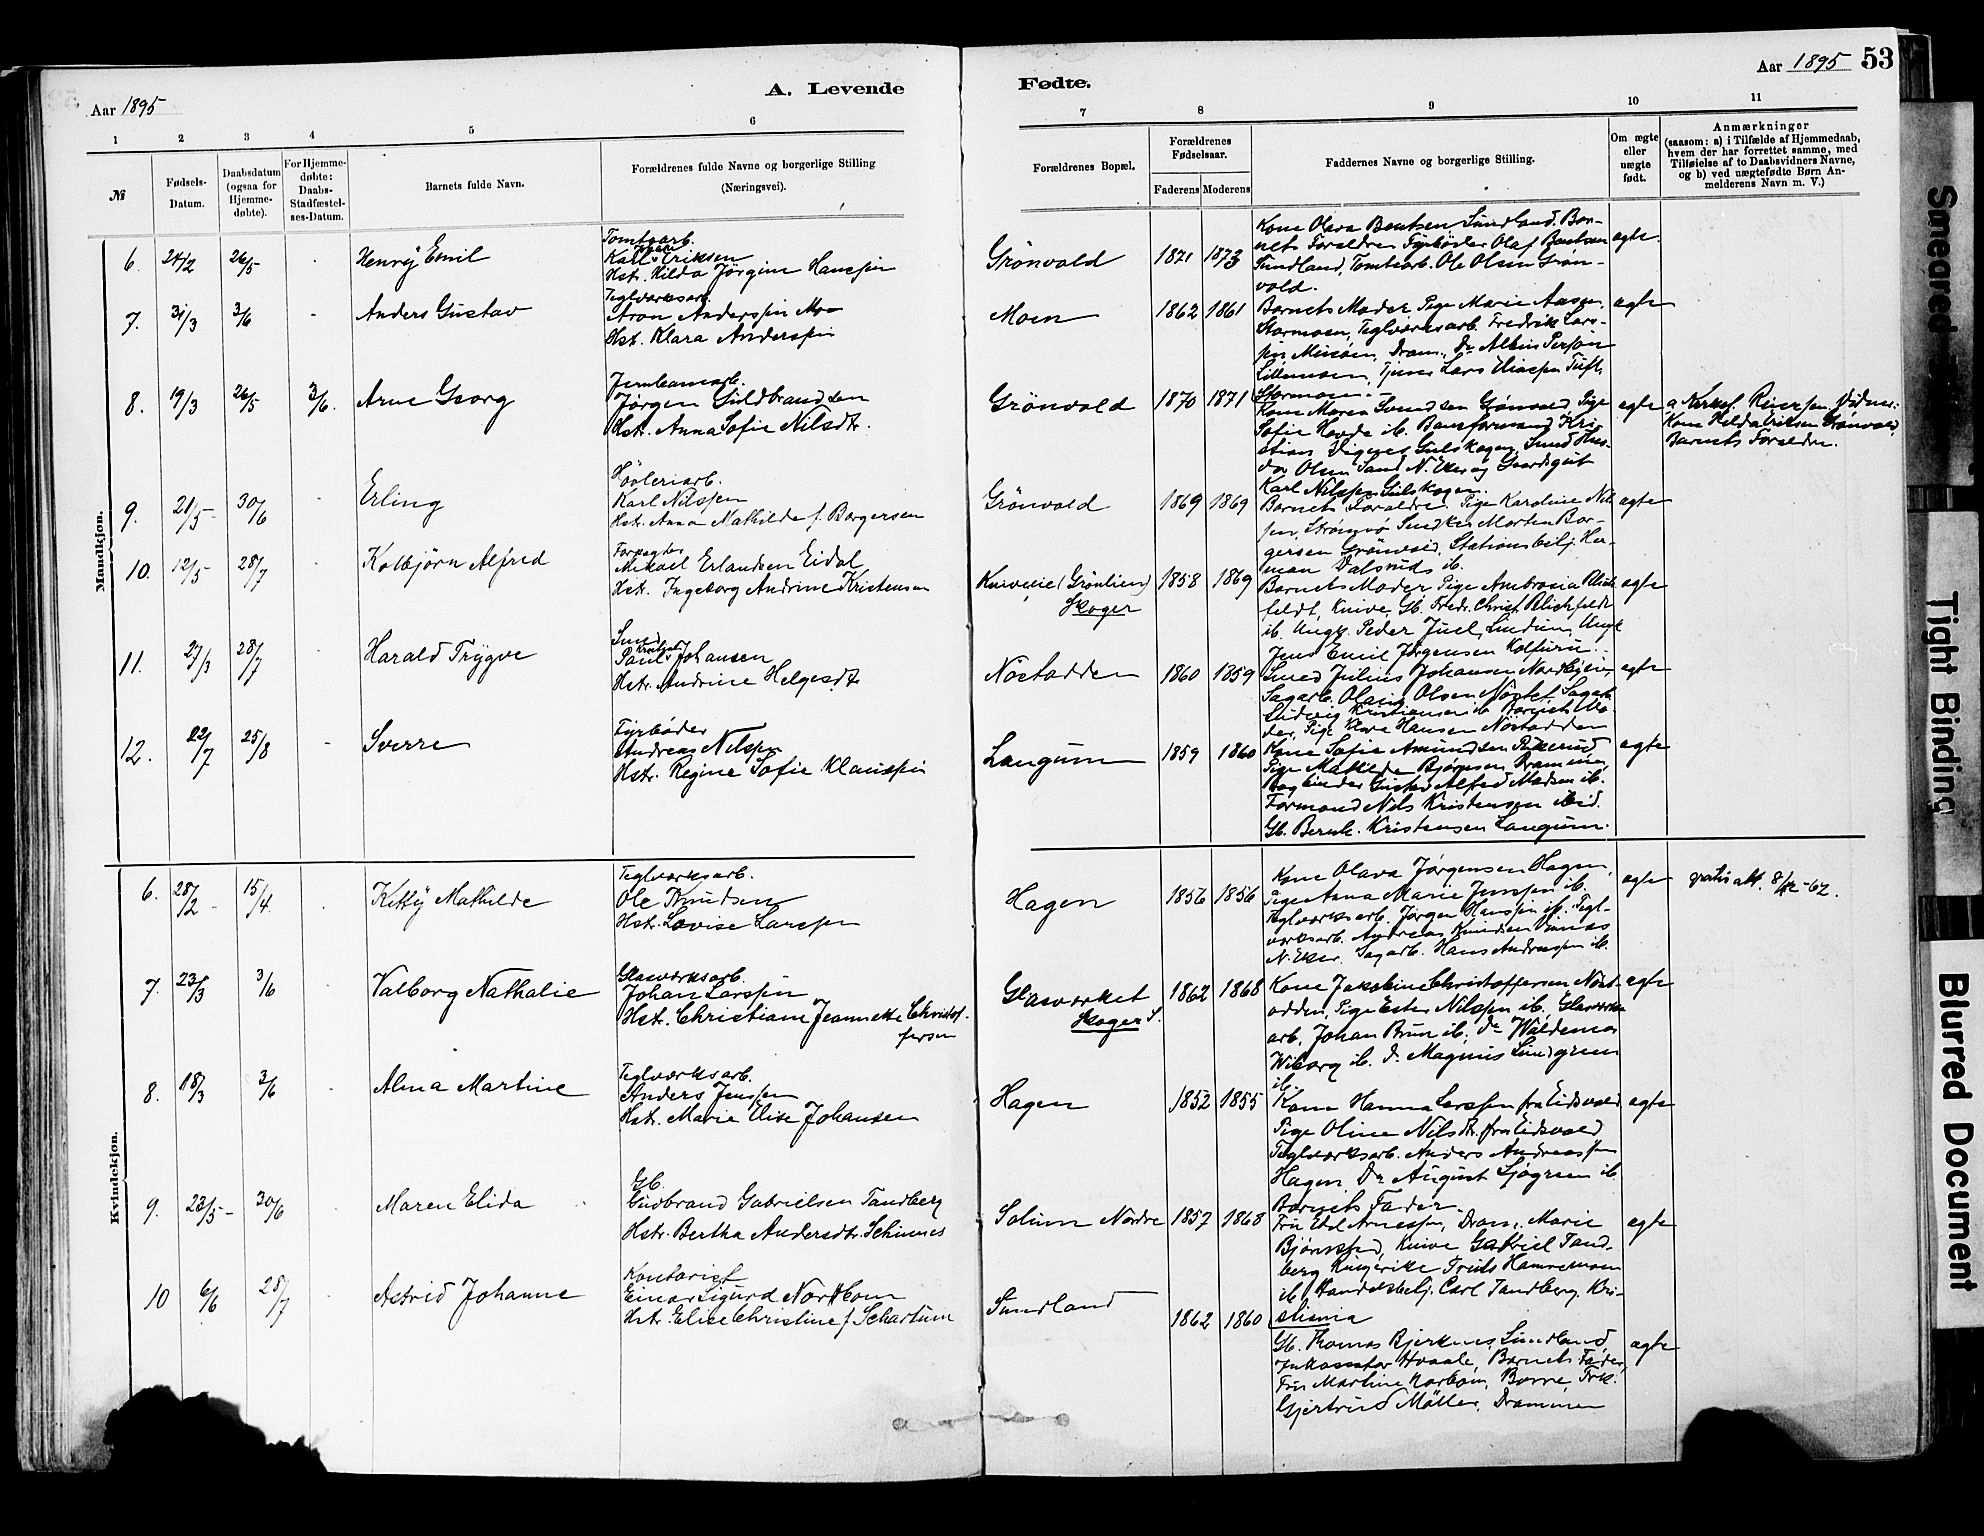 Aar 1895
A. Levende
Fødte.
Aar 1895
53
1
2
3
4
5
6
7
8
9
10
11
№
Fødsels-
Datum.
Daabsdatum
(ogsaa for
Hjemme-
døbte).
For Hjemme-
døbte:
Daabs-
Stadfæstel-
ses-Datum.
Barnets fulde Navn.
Forældrenes fulde Navne og borgerlige Stilling
(Næringsvei).
Forældrenes Bopæl.
Forældrenes
Fødselsaar.
Faderens
Moderens
Faddernes Navne og borgerlige Stilling.
Om ægte
eller
uægte
født.
Anmærkninger
(saasom: a) i Tilfælde af Hjemmedaab,
hvem der har forrettet samme, med
Tilføielse af to Daabsvidners Navne,
og b) ved uægtefødte Børn An-
melderens Navn m. V.)
Mandkjøn.
6. 24/2 26/5 - Henry Emil
Tomtearb.
Karl Eriksen
Hst. Hilda Jörgine Hanssen
Grönvold 1871 1873
Kone Olava Bentsen, Sundland. Bar-
nets Forældre, Fyrböder Olaf Bentsen
Sundland, Tomtearb. Ole Olsen Grön-
vold.
ægte
7. 31/3 3/6 - Anders Gustav
Teglværksarb.
Aron Anderssen Moe
Hst. Klara Anderssen
Moen 1862 1861
Barnets Moder, Pige Marie Aasen,
Stormoen, Teglværksarb. Fredrik Lars-
sen Moen, Dram., Do Albin Person
Lillemoen, Tjener Lars Eliassen Tuft,
Stormoen.
ægte
8. 19/3 26/5 3/6. Arne Georg
Jernbanearb.
Jørgen Guldbrandsen
Hst. Anna Sofie Nilsdtr.
Grönvold 1870 1871
Kone Maren Svendsen Grönvold Pige
Sofie Hovde ib. Baneformand Kri-
stian Digeres Gulskogen, Smed Hus-
Olsen Sand N. Eker og Gaardsgut
Karl Nilssen Gulskogen.
ægte
Kone Hilda Eriksen Grönvold,
Barnets Forældre.
9. 21/5 - 30/6 - Erling
Høvleriarb.
Karl Nilssen
Hst. Anna Mathilde f. Borgersen
Grönvold 1869 1869
Barnets Forældre. Pige Karoline Nils-
sen, Strømsø Snedker Morten Bor-
gersen Grönvold, Stationsbetj. Her-
man Dalsrud ib.
ægte
10. 12/5 - 28/7 Kolbjörn Alfred
Forpagter
Mikael Erlandsen Eidal
Hst. Ingeborg Andrine Kristensen
Kniveeie (Grönlien)
Skoger
1858 1869
Barnets Moder, Pige Ambrosia Blich-
feldt, Knive Gb. Fredr. Christ. Blichfeldt
ib. Ungk. Peder Juel, Lindum, Ungk
Jens Emil Jörgensen Kolfuru.
ægte
11. 27/3 28/7 Harald Trygve
Smed
Paul Kristian Johansen
Hst. Andrine Helgesdt.
Nöstodden 1860 1859
Smed Julius Johansen Nordbyen,
Sagarb. Olaus Olsen Nöstet, Sagarb.
Ludvig Kristiansen ib. Barnets Mo-
der, Pige Klara Hansen Nöstodden
ægte
12. 22/7 25/8 - Sverre
Fyrbøder
Andreas Nilssen
Hst. Regine Sofie Klaussen
Langum 1859 1860
Kone Sofie Amundsen Rikerud,
Pige Mathilde Bjørnsen Drammen,
Bogbinder Gustav Alfred Madsen ib.
Formand Nils Kristensen ibid.
Gb. Bernh. Kristensen Langum.
ægte
Kvindekjøn.
6. 28/2 - 15/4. Kitty Mathilde
Teglværksarb.
Ole Knudsen
Hst. Lovise Larssen
Hagen 1856 1856
Kone Olava Jørgensen Hagen,
Pige Anna Marie Jenssen ib.
Teglværksarb. Jörgen Hanssen ib. Tegl-
værksarb. Andreas Knudsen
N. Eker. Sagarb. Hans Andreassen ib.
ægte
gratis att. 8/12-62.
7. 23/3 3/6 Valborg Nathalie
Glasværksarb.
Johan Larssen
Hst. Christiane Jeannette Christof-
fersen
Glasværket
Skoger S.
1862 1868
Kone Jakobine Christoffersen Nöst-
odden, Pige Ester Nilssen ib., Glasværks-
arb. Johan Brun ib. Do Waldemar
Wiborg ib. Do Magnus Lindgreen
ib.
ægte
8. 18/3 3/6 Alma Martine
Teglværksarb.
Anders Jenssen
Hst. Marie Elise Johansen
Hagen 1852 1855
Kone Hanna Larssen fra Eidsvold
Pige Oline Nilsdtr. fra Eidsvold
Teglværksarb. Anders Andreassen
Hagen Do August Sjøgren ib.
Barnets Fader.
ægte
9. 23/5 - 30/6 Maren Elida
Gb.
Gudbrand Gabrielsen Tandberg
Hst. Bertha Andersdtr. Schinnes
Solum Nordre 1857 1868
Fru Edel Arnessen, Dram., Marie
Bjørnstad, Knive Gabriel Tand-
berg Ringerike Truls Hammerson
ib Handelsbetj. Carl Tandberg, Kri-
stiania
ægte
10 6/6 28/7 Astrid Johanne
Kontorist
Einar Sigurd Northom
Hst. Elise Christine f. Schartum
Sundland 1862 1860
Gb. Thomas Bjerknes, Sundland,
Inkassator Hvaale, Barnets Fader,
Fru Martine Norbom, Borre, Frk.
Gjertrud Möller, Drammen
ægte
Smeared
Tight Binding
Blurred Document